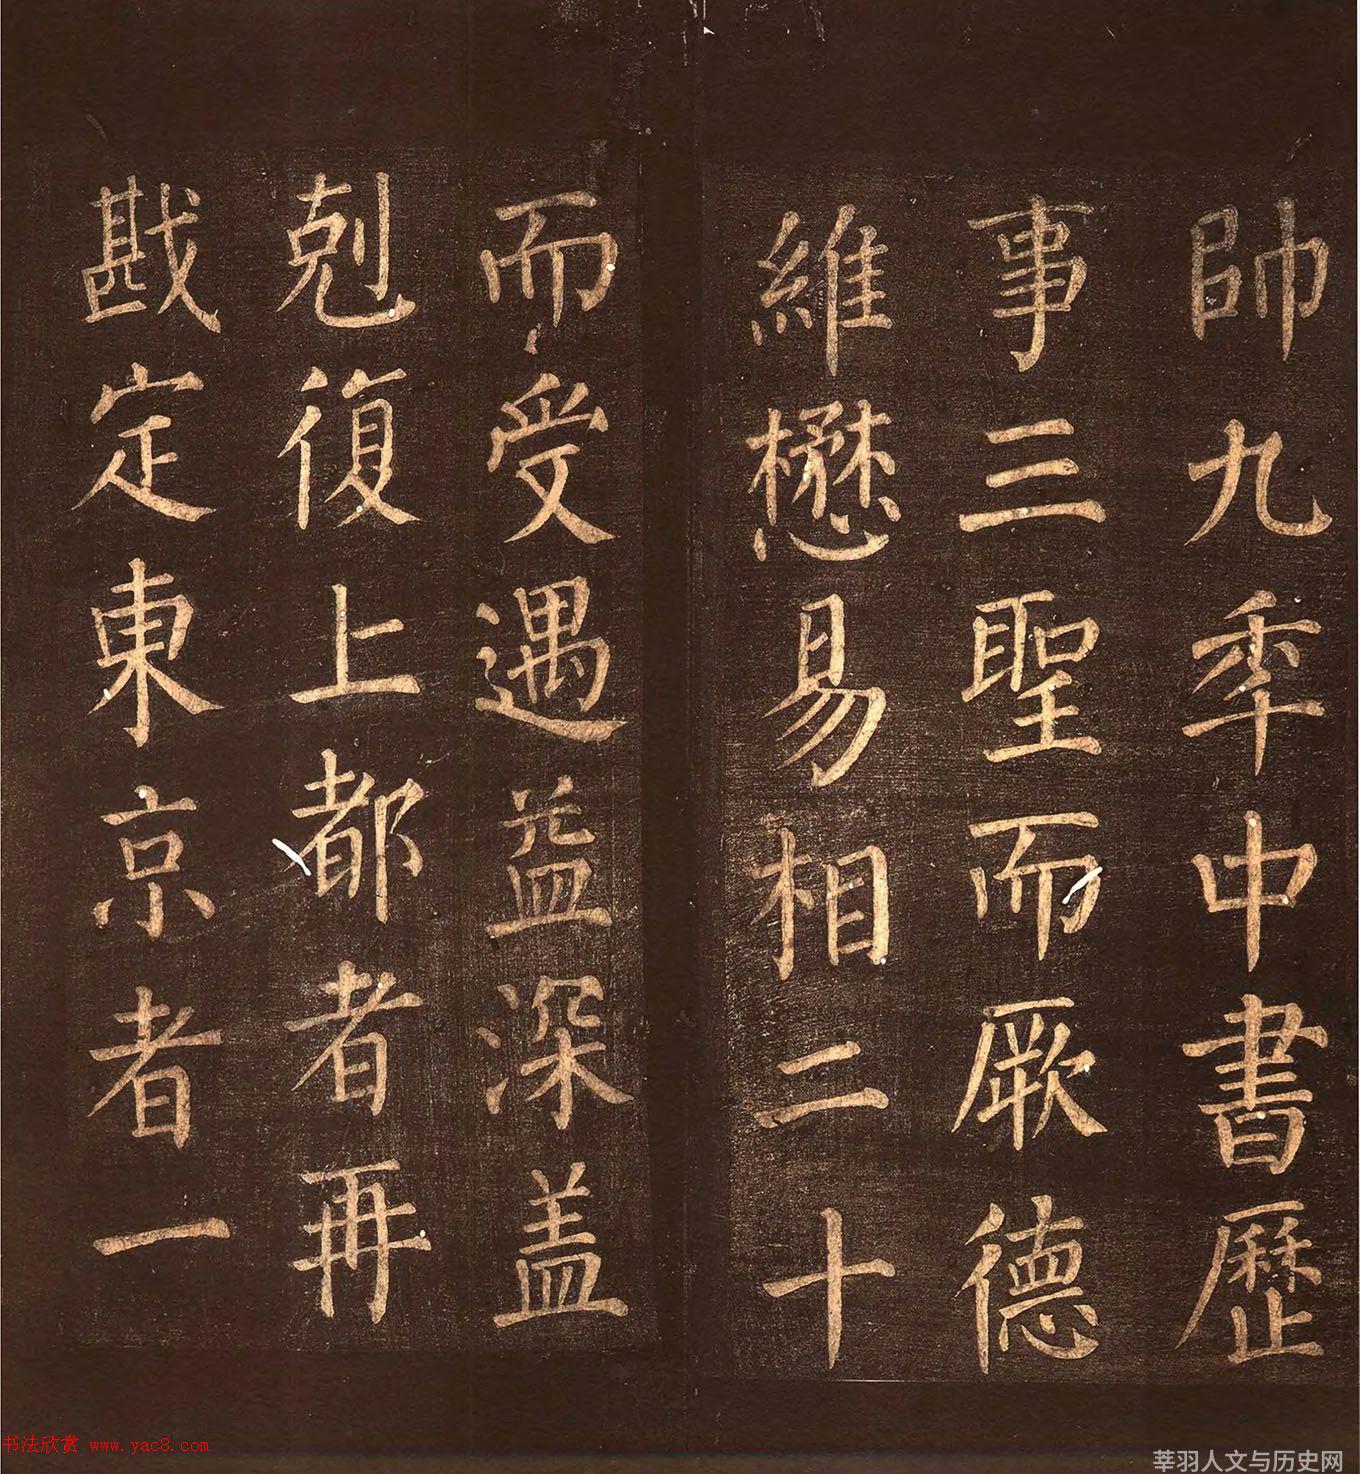 帥九秊中書歷
事三聖而厥德
維懋易相二十
而受遇益深蓋
剋復上都者再
戡定東京者一
书法欣赏 www.yac8.com
莘羽人文与历史网